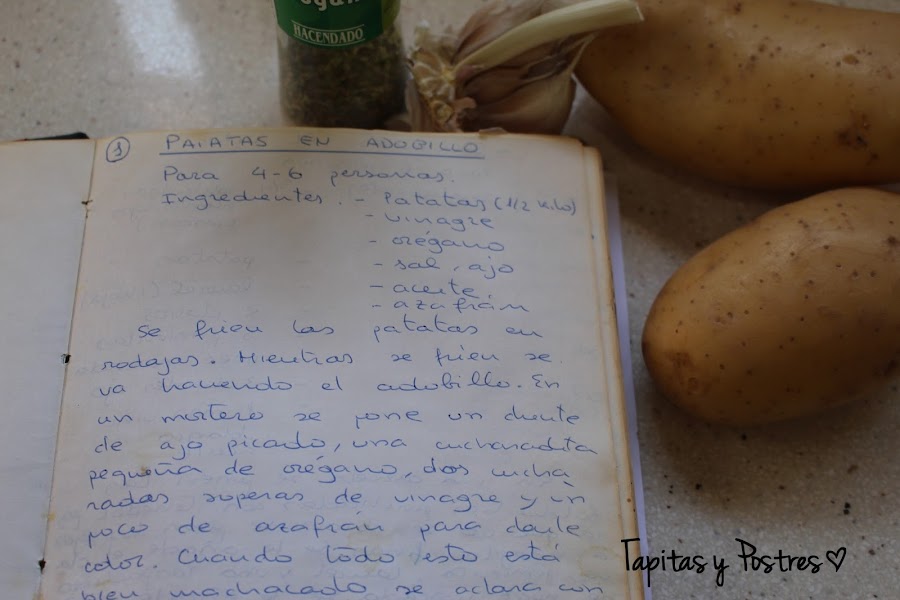 HACENDADO
① PATATAS EN ADOBILLO
Para 4-6 personas.
Ingredientes. - Patatas (1/2 kilo)
- vinagre
- orégano
- sal, ajo
- aceite
- azafrán
Se frien las patatas en
rodajas. Mientras se frien se
va haciendo el adobillo. En
un mortero se pone un diente
de ajo picado, una cucharadita
pequeña de orégano, dos cucha
radas soperas de vinagre y un
poco de azafrán para darle
color. Cuando todo esto está
bien machacado se aclara con
Tapitas y Postres♡